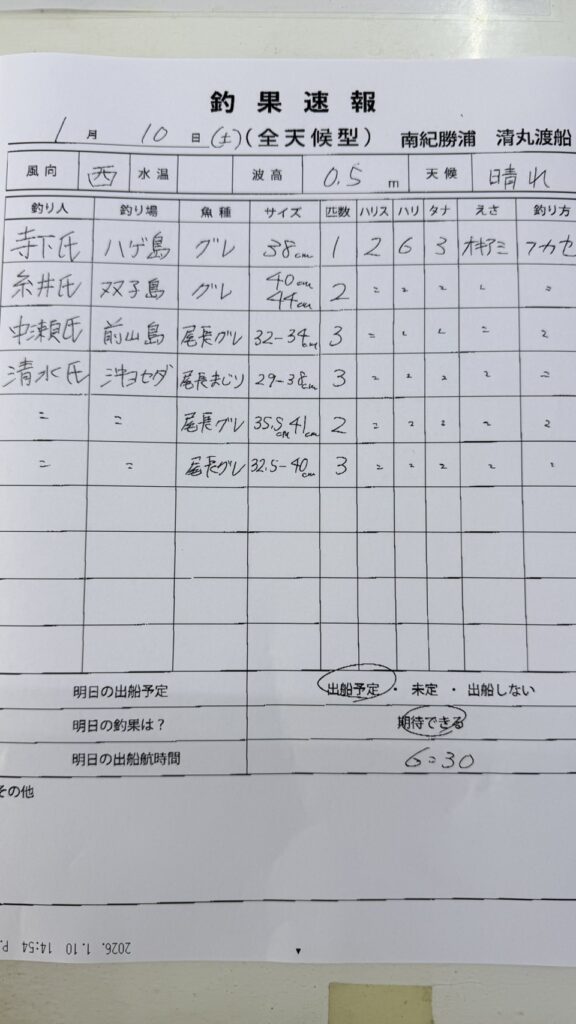 釣果速報
1月10日(土)(全天候型) 南紀勝浦 清丸渡船
風向 西 水温 波高 0.5m 天候 晴れ
釣り人 釣り場 魚種 サイズ 匹数 ハリス ハリ タナ えさ 釣り方
寺下氏 ハゲ島 グレ 38cm 1 2 6 3 オキアミ フカセ
糸井氏 双子島 グレ 40cm 44cm 2 〃 〃 〃 〃 〃
中瀬氏 前山島 尾長グレ 32-34cm 3 〃 〃 〃 〃 〃
清水氏 沖ヨセダ 尾長まじり 29-38cm 3 〃 〃 〃 〃 〃
〃 〃 尾長グレ 35.5cm 41cm 2 〃 〃 〃 〃 〃
〃 〃 尾長グレ 32.5-40cm 3 〃 〃 〃 〃 〃
明日の出船予定 出船予定・未定・出船しない
明日の釣果は? 期待できる
明日の出船航時間 6:30
その他
2026. 1.10 14:54 P.